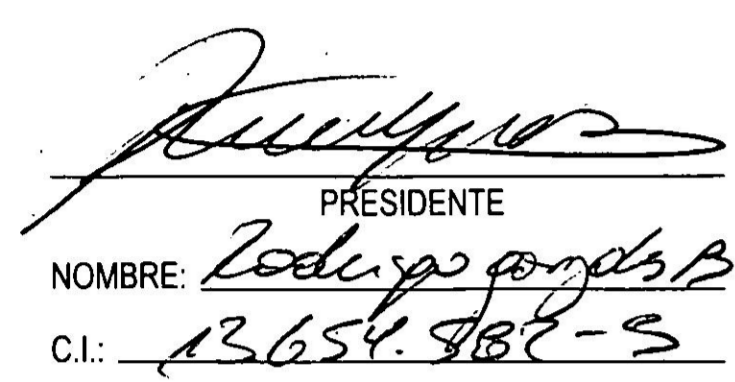 PRESIDENTE
NOMBRE: Rodrigo gonzals B
C.I.: 13654.882-5